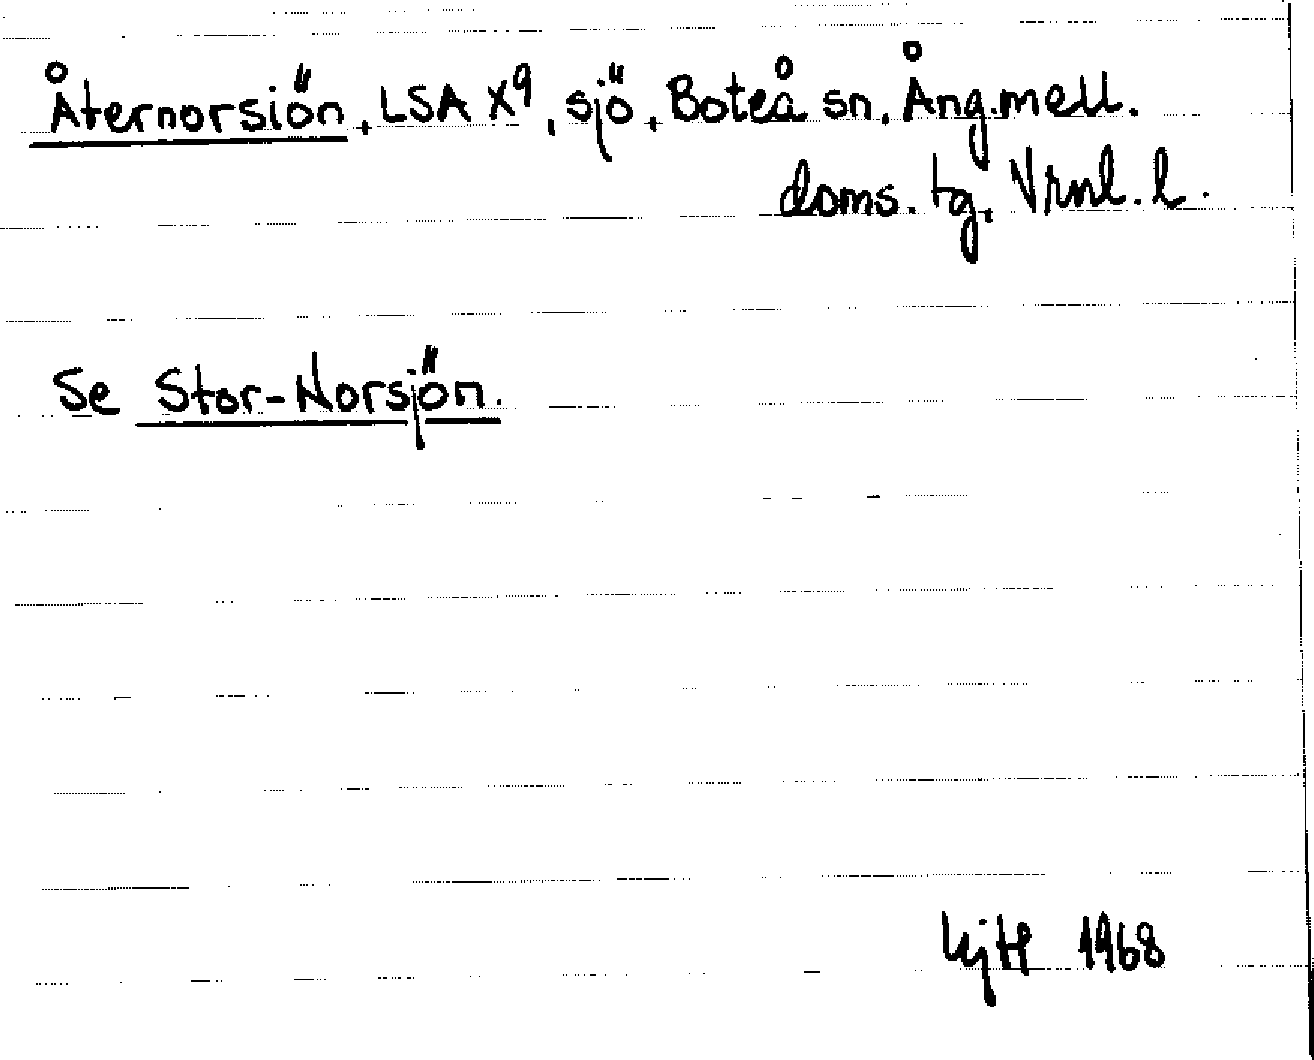 Åternorsiön, LSA X9, sjö, Boteå sn, Ång.mell.
doms. tg. Vrnl. l.
Se Stor-Norsjön.
1968